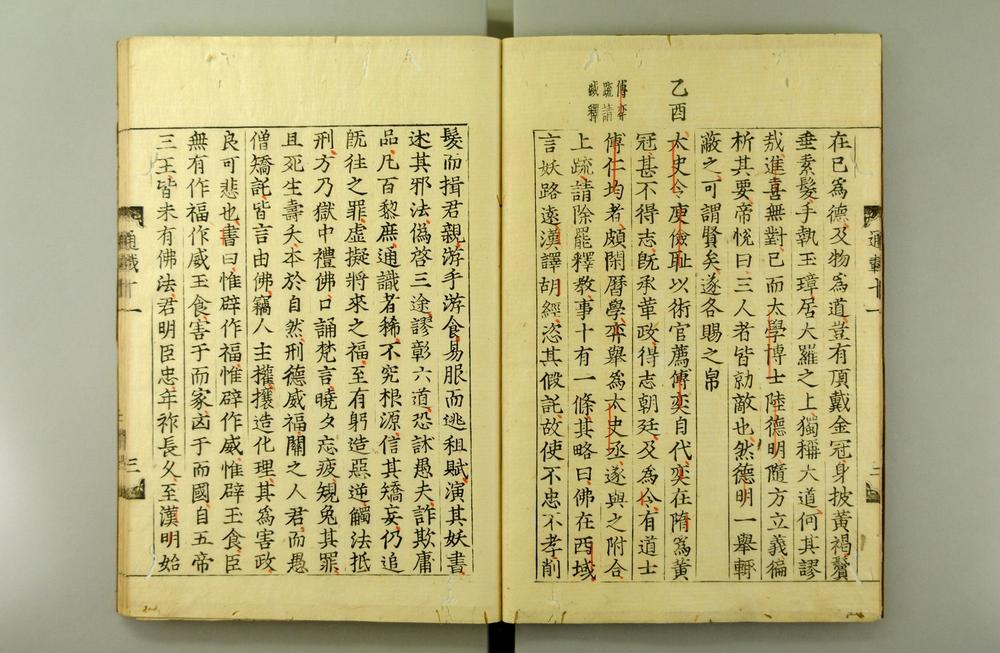 在已為德及物為道豈有頂戴金冠身披黃褐鬢
垂素髮手執玉璋居大羅之上獨稱大道何其謬
哉進喜無對已而太學博士陸德明隨方立義徧
析其要帝悅曰三人者皆勍敵也然德明一舉輒
蔽之可謂賢矣遂各賜之帛
乙酉
太史令庾儉耻以術官薦傅奕自代奕在隋為黃
冠甚不得志既承革政得志朝廷及為令有道士
傅奕
疏請
滅釋
傅仁均者頗閑曆學奕舉為太史丞遂與之附合
上疏請除罷釋教事十有一條其略曰佛在西域
言妖路遠漢譯胡經恣其假託故使不忠不孝削
通載十一
三
髮而揖君親游手游食易服而逃租賦演其妖書
述其邪法偽啓三途謬彰六道恐訹愚夫詐欺庸
品凡百黎庶通識者稀不究根源信其矯妄仍追
既往之罪虛擬將來之福至有躬造惡逆觸法抵
刑方乃獄中禮佛口誦梵言曉夕忘疲規免其罪
且死生壽夭本於自然刑德威福關之人君而愚
僧矯託皆言由佛竊人主權攘造化理其為害政
良可悲也書曰惟辟作福惟辟作威惟辟玉食臣
無有作福作威玉食害于而家凶于而國自五帝
三王皆未有佛法君明臣忠年祚長久至漢明始
通載十一
三